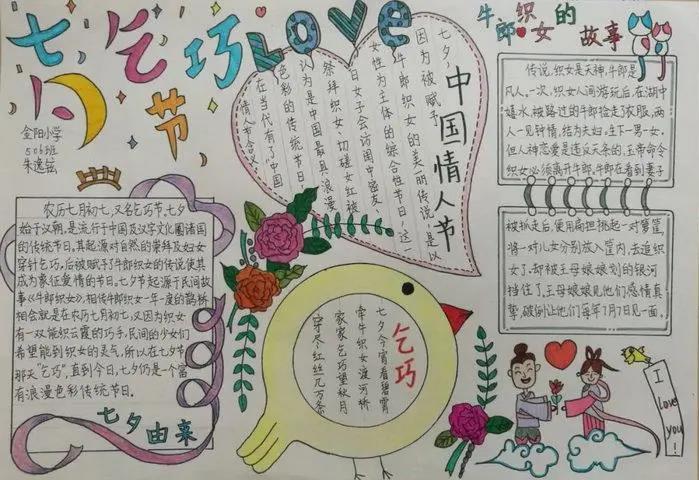 七夕
乞巧
节
LOVE
金阳小学
506班
朱逸铉
农历七月初七,又名乞巧节,七夕
始于汉朝,是流行于中国及汉字文化圈诸国
的传统节日,其起源对自然的崇拜及妇女
穿针乞巧,后被赋予了牛郎织女的传说使其
成为象征爱情的节日。七夕节起源于民间故
事《牛郎织女》,相传牛郎织女一年一度的鹊桥
相会就是在农历七月初七,又因为织女
有一双能织云霞的巧手,民间的少女们
希望能到织女的灵气,所以在七夕节
那天"乞巧",直到今日,七夕仍是一个富
有浪漫色彩传统节日。
七夕由来
中国情人节
七夕
因为被赋予
牛郎织女的美丽传说,是以
女性为主体的综合性节日,这一
日女子会访闺中密友
祭拜织女、切磋女红被
认为是中国最具浪漫
色彩的传统节日
在当代有了中国
情人节含义
乞巧
七夕今宵看碧霄
牵牛织女渡河桥
家家乞巧望秋月
穿尽红丝几万条
牛郎织女的
故事
传说,织女是天神,牛郎是
凡人。一次,织女人间游玩后,在湖中
嬉水,被路过的牛郎捡走了衣服,两
人一见钟情,结为夫妇,生下一男一女,
但人神恋爱是违反天条的,玉帝命令
织女必须离开牛郎,牛郎在看到妻子
被抓走后,使用扁担挑起一对箩筐,
将一对儿女分别放入筐内,去追织
女了,却被王母娘娘划的银河
挡住了。王母娘娘见他们感情真
挚,破例让他们每年7月7日见一面。
I love
you!